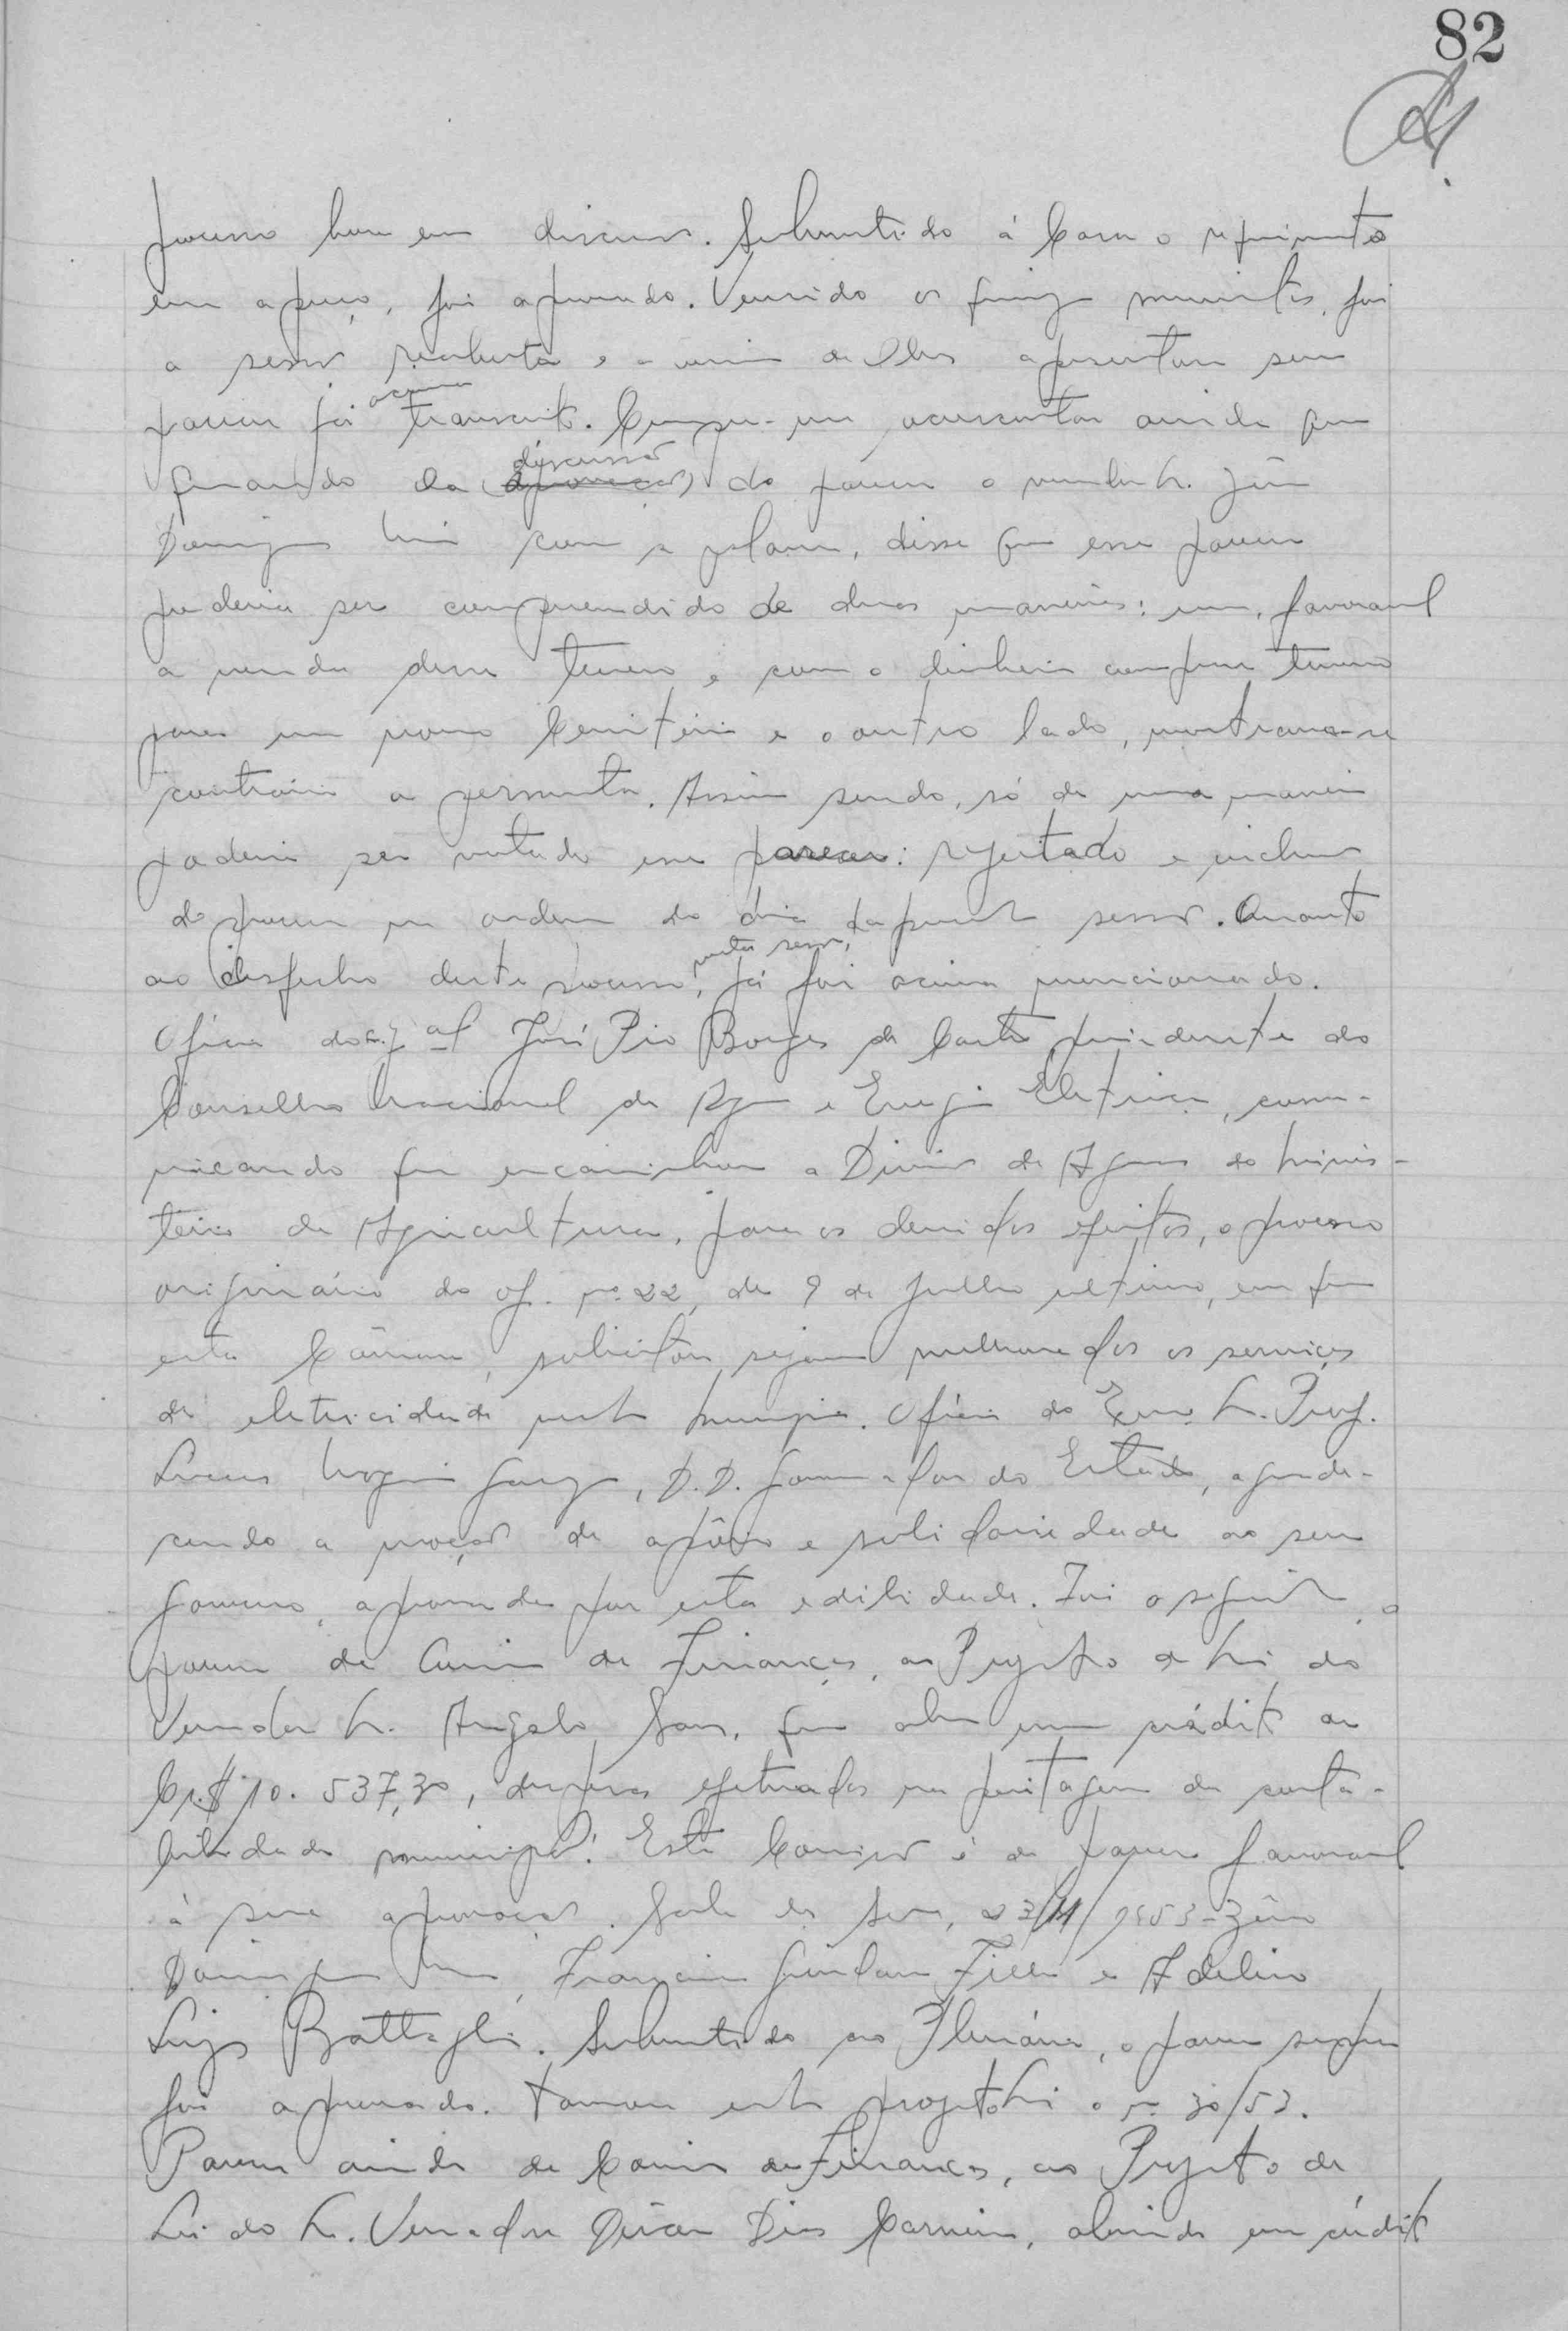 82
processo hora em discussão. Submetido à Casa o requerimento
em apreço, foi aprovado. Vencido os quinze minutos, foi
a sessão reaberta e a comissão de Obras apresentou seu
parecer já acima transcrito. Cumpre-me acrescentar ainda que
quando da discussão do parecer o vereador Sr. Zêno
Domingues com a palavra, disse que esse parecer
poderia ser compreendido de duas maneiras: uma, favoravel
a venda desse terreno e com o dinheiro comprar terreno
para um novo Cemitério e o outro lado, mostrava-se
contrario a permuta. Assim sendo, só de uma maneira
poderia ser votado esse parecer: rejeitado e inclusão
do parecer na ordem do dia da presente sessão. Quanto
ao desfecho deste processo, nesta sessão, já foi acima mencionado.
Oficio do José Pio Borges de Castro presidente do
Conselho Nacional de Aguas e Energia Eletrica, comu-
nicando que encaminhou a Divisão de Aguas do Minis-
tério da Agricultura, para os devidos efeitos, o processo
originário do of. nº 22, de 9 de Julho ultimo, em que
esta Câmara, solicitou sejam melhorados os serviços
de eletricidade neste Municipio. Oficio do Exmo. Sr. Prof.
Lucas Nogueira Garcez, D.D. Governador do Estado, agrade-
cendo a moção de apôio e solidariedade ao seu
Governo, aprovada por esta edilidade. Foi o seguinte, o
parecer da Comissão de Finanças, ao Projeto de Lei do
Vereador Sr. Angelo que abre um crédito de
Cr.$ 10.537,30, despesas efetuadas na peritagem da conta-
bilidade municipal: Esta Comissão é de parecer favoravel
à sua aprovação. Sala das Sessões, 23/11/1953 - Zêno
Domingues Francisco Filho e Adelino
Luiz Battaglia. Submetido ao Plenário, o parecer supra
foi aprovado. Tomou este projeto Lei o nº 30/53.
Parecer ainda da Comissão de Finanças, ao Projeto de
Lei do Sr. Vereador Dirceu Dias Carneiro, abrindo um crédito